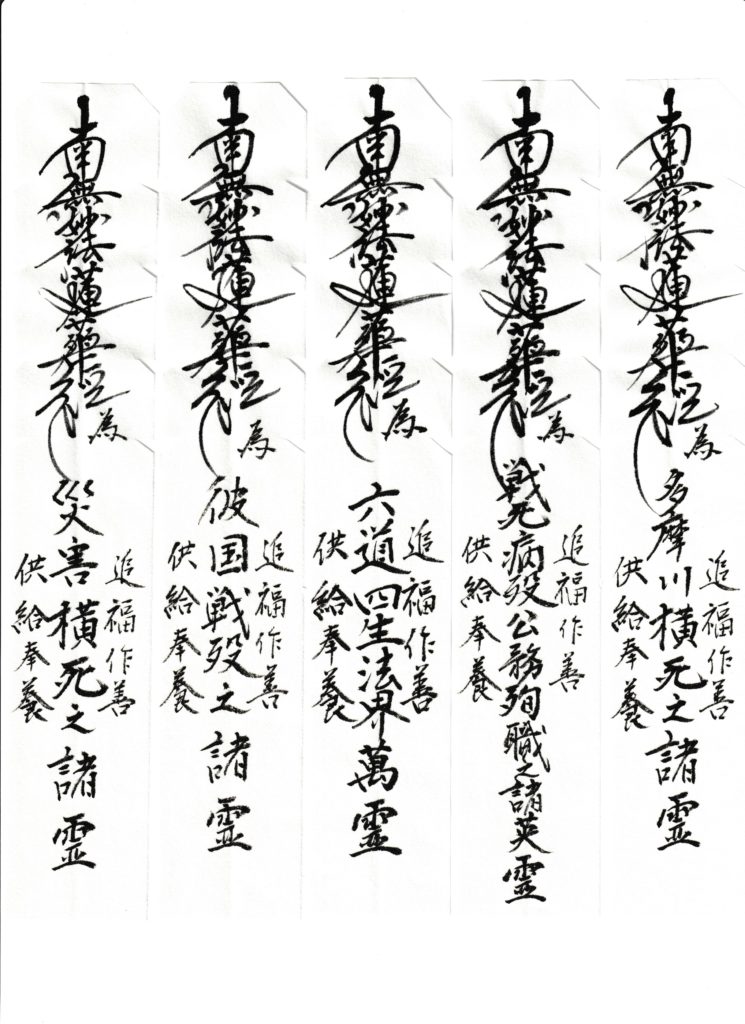 南無妙法蓮華経
為
多摩川横死之諸霊
追福作善
供給奉養
南無妙法蓮華経
為
戦死病歿公務殉職之諸英霊
追福作善
供給奉養
南無妙法蓮華経
為
六道四生法界萬霊
追福作善
供給奉養
南無妙法蓮華経
為
彼国戦歿之諸霊
追福作善
供給奉養
南無妙法蓮華経
為
災害横死之諸霊
追福作善
供給奉養